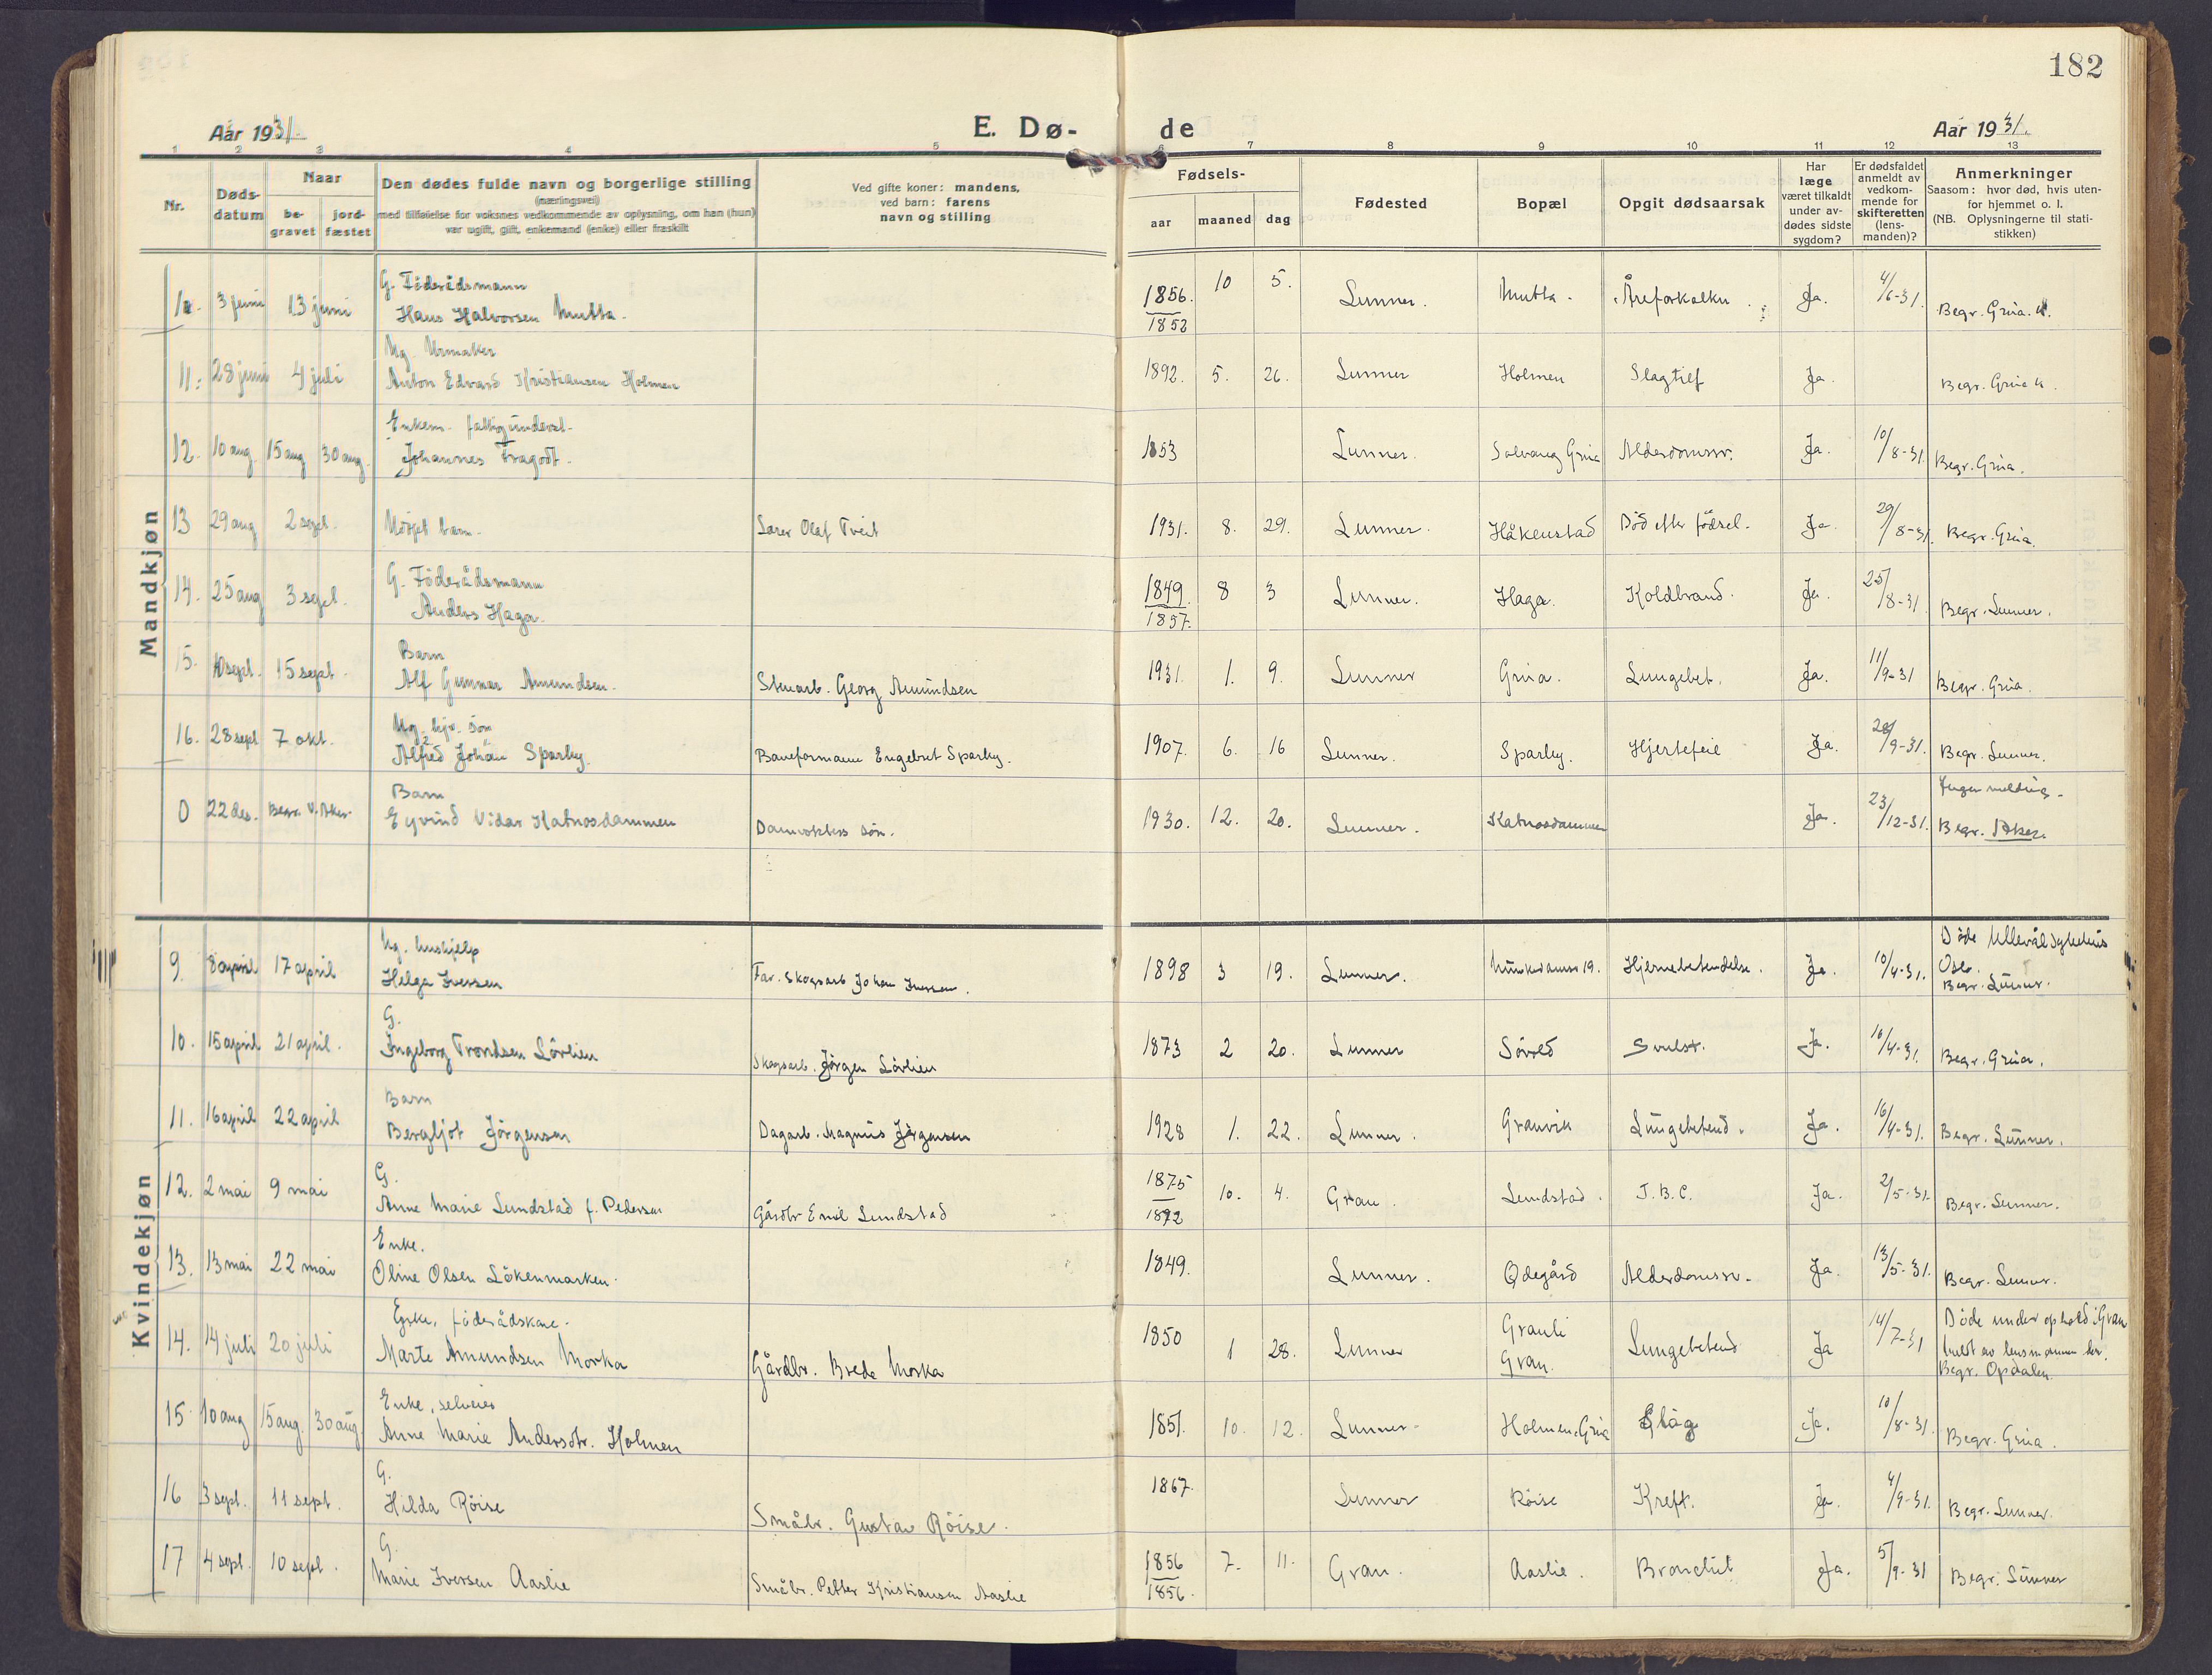 182
Aar 1931.
E. Dø-
de
Aar 1931.
1 2 3 4 5 6 7 8 9 10 11 12 13
Nr.
Døds-
datum
Naar
be-
gravet
jord-
fæstet
Den dødes fulde navn og borgerlige stilling
(næringsvei)
med tilføielse for voksnes vedkommende av oplysning, om han (hun)
var ugift, gift, enkemand (enke) eller fraskilt
Ved gifte koner: mandens,
ved barn: farens
navn og stilling
Fødsels-
aar
maaned
dag
Fødested
Bopæl
Opgit dødsaarsak
Har
læge
været tilkaldt
under av-
dødes sidste
sygdom?
Er dødsfaldet
anmeldt av
vedkom-
mende for
skifteretten
(lens-
manden)?
Anmerkninger
Saasom: hvor død, hvis uten-
for hjemmet o. l.
(NB. Oplysningerne til stati-
stikken)
Mandkjøn
G. Föderådsmann
3 juni 13 juni Hans Halvorsen Mutta. 1856. 10 5. Lunner. Mutta. Åreforkalkn. Ja. 4/6-31. Begr. Grua. k.
1853
Ug. Urmaker
11. 28 juni 4 juli Anton Edvard Kristiansen Holmen 1892. 5. 26. Lunner Holmen Slagtilf Ja. Begr. Grua k.
Enkem. fattigunderst.
12. 10 aug. 15 aug 30 aug. Johannes Fragodt. 1853 Lunner. Solvang Grua Alderdomssv. Ja. 10/8-31. Begr. Grua.
13 29 aug 2 sept. Udöpt barn. Lærer Olaf Tveit 1931. 8. 29. Lunner. Håkenstad Död efter födsel. Ja. 29/8-31. Begr. Grua.
G. Föderådsmann
14. 25 aug 3 sept. Anders Haga. 1849. 8 3 Lunner. Haga. Koldbrand. Ja. 25/8-31. Begr. Lunner.
1857.
Barn
15. 10 sept. 15 sept. Alf Gunnar Amundsen. Stenarb. Georg Amundsen 1931. 1. 9. Lunner Grua. Lungebet. Ja. 11/9-31 Begr. Grua.
Ug. hjv. sön
16. 28 sept 7 okt. Alfred Johan Sparby. Baneformann Engebret Sparby. 1907. 6. 16 Lunner. Sparby. Hjertefeil Ja. 28/9-31. Begr. Lunner.
Barn Ingen melding.
0 22 des. Begr. V. Aker. Eyvind Vidar Katnosdammen Damvokters sön. 1930. 12. 20. Lunner. Katnosdammen Ja. 23/12-31. Begr. Aker.
Kvindekjøn
Ug. hushjelp Döde Ullevål sykehus
9. 8 april 17 april Helga Iversen Far. Skogsarb Johan Iversen. 1898 3 19. Lunner. Munkedamsv 19. Hjernebetendelse. Ja. 10/4-31. Oslo.
Begr. Lunner.
G.
10. 15 april 21 april. Ingeborg Trondsen Lövlien Skogsarb. Jörgen Lövlien 1873 2 20. Lunner Svulst. Ja. 16/4-31. Begr. Grua.
Barn
11. 16 april 22 april Bergljot Jörgensen Dagarb. Magnus Jörgensen 1928 1. 22. Lunner. Granvik Lungebetend. Ja. 16/4-31. Begr. Lunner.
G.
12. 2 mai 9 mai Anne Marie Lundstad f. Pedersen Gårdbr Emil Lundstad 1875 10. 4. Gran. Lundstad. T.B.C. Ja. 2/5-31. Begr. Lunner.
1892
Enke.
13. 13 mai 22 mai Oline Olsen Lökenmarken. 1849. Lunner. Ödegård Alderdomssv. Ja 13/5-31. Begr. Lunner.
Enke, föderådskone. Döde under ophold i Gran
14. 14 juli 20 juli Marte Amundsen Morka Gårdbr. Brede Morka 1850 1 28. Lunner Granli Gran. Lungebetend Ja 14/7-31 av lensmannen der.
Begr. Opdalen.
Enke, selveier
15 10 aug 15 aug. 30 aug Anne Marie Andersdtr. Holmen 1851. 10. 12. Lunner. Holmen, Grua Slag Ja. 10/8-31. Begr. Grua.
G.
16 3 sept. 11 sept. Hilda Röise Småbr. Gustav Röise. 1867. Lunner Röise Kreft. Ja. 4/9-31. Begr. Lunner.
G.
17 4 sept. 10 sept. Marie Iversen Aaslie Småbr. Petter Kristiansen Aaslie 1856 7. 11. Gran. Aaslie. Bronchit Ja. 5/9-31 Begr. Lunner
1856.